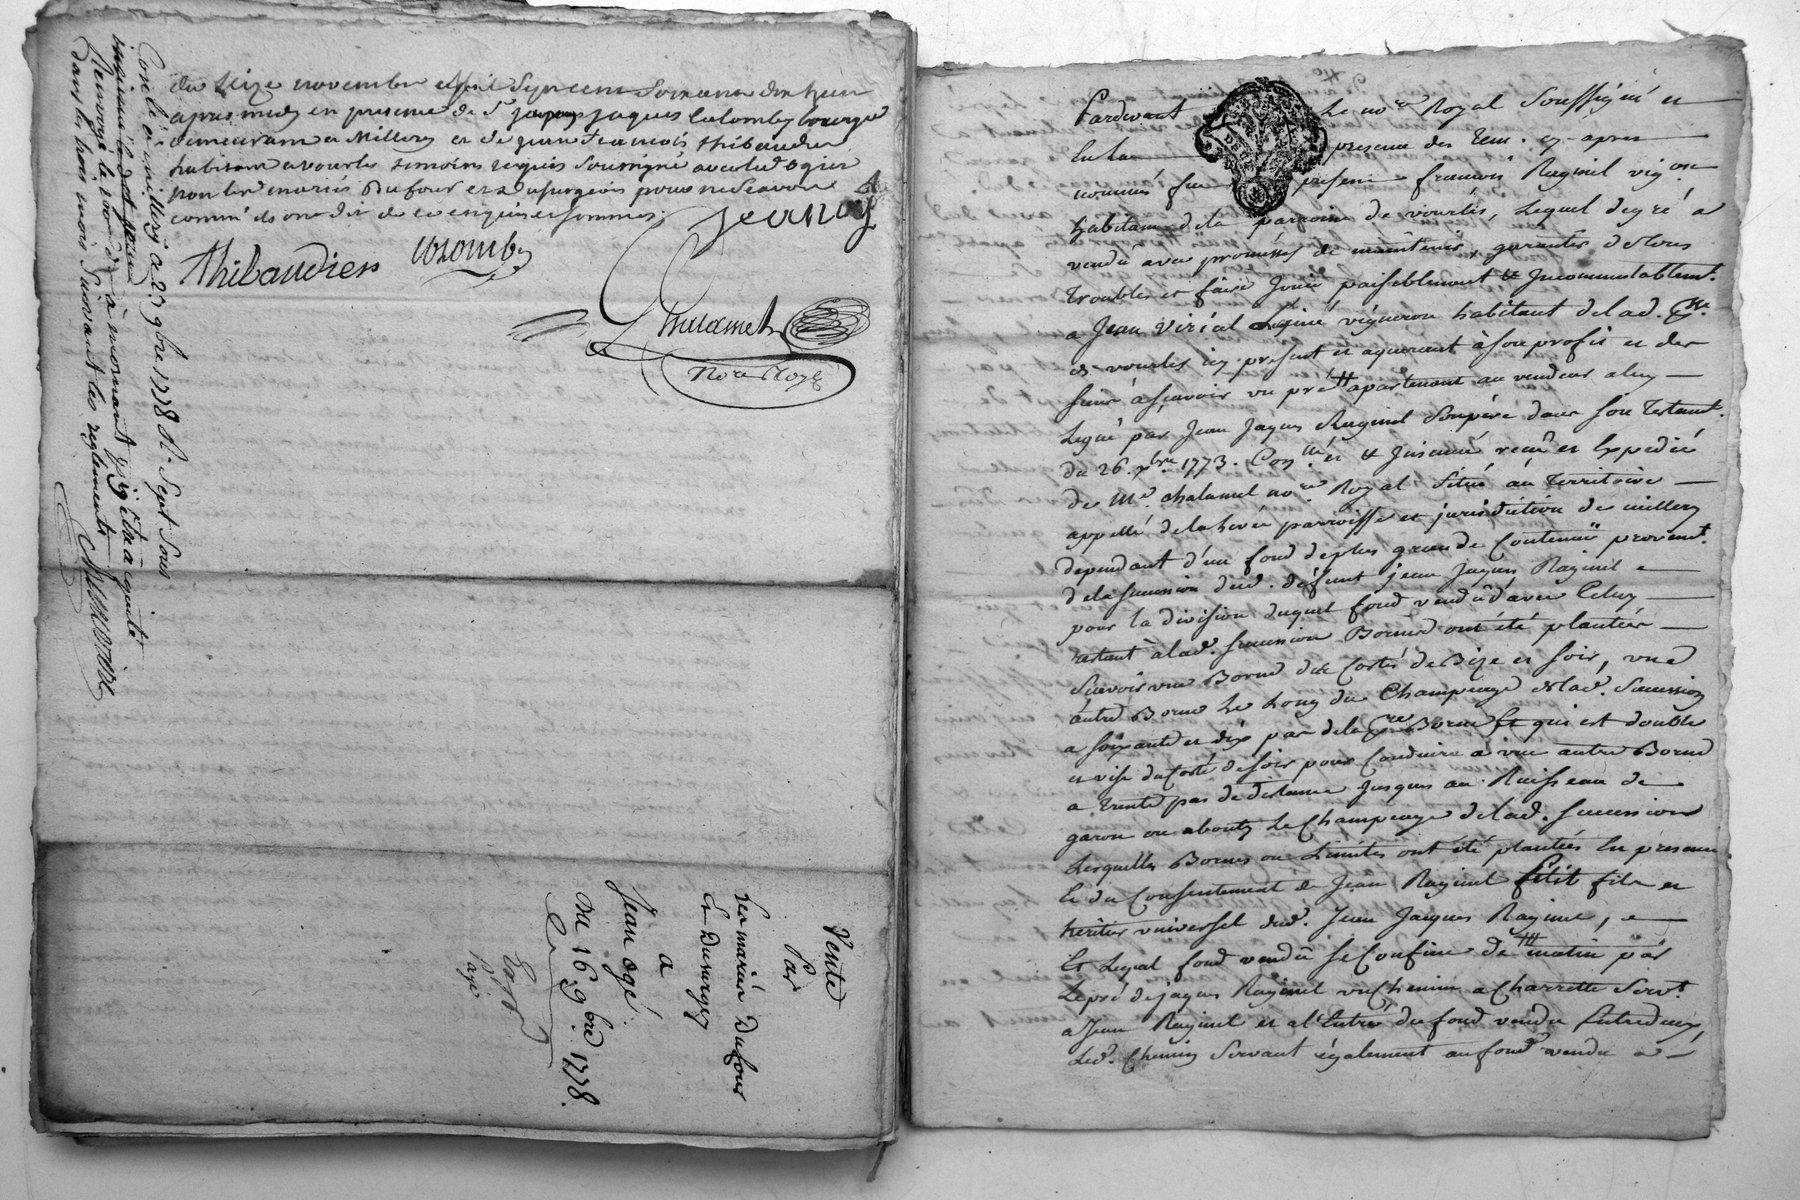 du seize novembre mil sept cent soixante dix huit
apres midy en presence de Sr jacques Colomby bourgeois
demeurant a Millery et de jean francois thibaudier
habitant a vourles temoins requis soussigné avec led ogier
non les mariés Dufour et Dusurgey pour ne scavoir
comme ils ont dit de ce enquis et sommés.
jean ogé
thibaudier colomby
Chalamel
No.re Royal
Conlé a millery a 23 9bre 1778 R. Sept Sous
insinué led jour
Renvoyé le 100e d. à mornant p y Etre acquité
dans les trois mois Suivant les reglements
Vente
Par
Les mariés Dufour
Et Dusurgey
a
Jean ogé.
Du 16. 9bre. 1778.
Payé
Pardevant Le no.re Royal Soussigné et
En la presence des tem. cy-après
nommés fut présent francois Raginel vig.on
habitant de la parroisse de vourles, Lequel de gré a
vendu avec promesses de maintenir, garantir de tous
troubles et faire Jouir paisiblement & Incommutablemt.
a Jean virial ainé vigneron habitant de lad. psse.
de vourles icy présent et aquerant à son profit et des
siens àsçavoir un pré apartenant au vendeur aluy
Legué par Jean Jaques Raginel Son père dans son testamt.
du 26. xbre 1773. Con.llé & Insinué recu et Expedié
de Me. chalamel no.re Royal Situé au Territoire
appellé de la hevée parroisse et jurisdiction de millery
dependant d'un fond de plus grande Contenue provent.
de la succession dud. défunt jean Jaques Raginel
pour la division duquel fond vendu d'avec Celuy
restant à lad. succession Bornes ont été plantées
Scavoir une Borne du Coté de Bize et soir, une
autre Borne Le Long du Champeage de lad. Succession
a soixante et dix pas de la pre. Borne Et qui est double
et vise du Coté de soir pour Conduire à une autre Borne
a trente pas de distance jusques au Ruisseau de
garon ou aboutit Le Champeage de lad. succession
Lesquelles Bornes ou Limites ont été plantées En presence
Et du Consentement de Jean Raginel petit fils et
heritier universel dud. Jean Jacques Raginel,
Et Lequel fond vendu se Confine de matin par
Le pré de jaques Raginel un Chemin a Charrette Servt.
a Jean Raginel et a l'Entrée du fond vendu Entredeux,
Led. Chemin Servant également au fond vendu